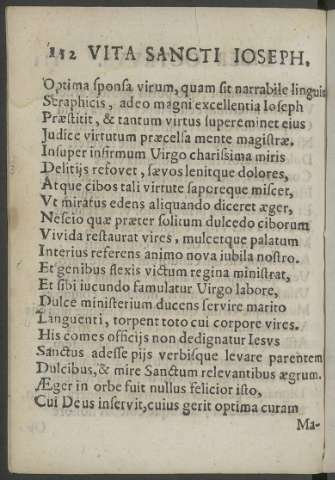 152 VITA SANCTI IOSEPH.
Optima sponsa virum, quam sit narrabile linguis
Seraphicis, adeo magni excellentia Ioseph
Præstitit, & tantum virtus supereminet eius
Judice virtutum præcelsa mente magistræ.
Insuper infirmum Virgo charissima miris
Delitijs refovet, sævos lenitque dolores,
Atque cibos tali virtute saporeque miscet,
Ut miratus edens aliquando diceret æger,
Nescio quæ præter solitum dulcedo ciborum
Vivida restaurat vires, mulcetque palatum
Interius referens animo nova iubila nostro.
Et genibus flexis victum regina ministrat,
Et sibi iucundo famulatur Virgo labore,
Dulce ministerium ducens servire marito
Languenti, torpent toto cui corpore vires.
His comes officijs non dedignatur Iesvs
Sanctus adesse pijs verbisque levare parentem
Dulcibus, & mire Sanctum relevantibus ægrum.
Æger in orbe fuit nullus felicior isto,
Cui Deus inservit, cuius gerit optima curam
Ma-